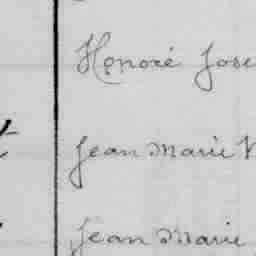 Honoré Jose
Jean Marie V
Jean Marie